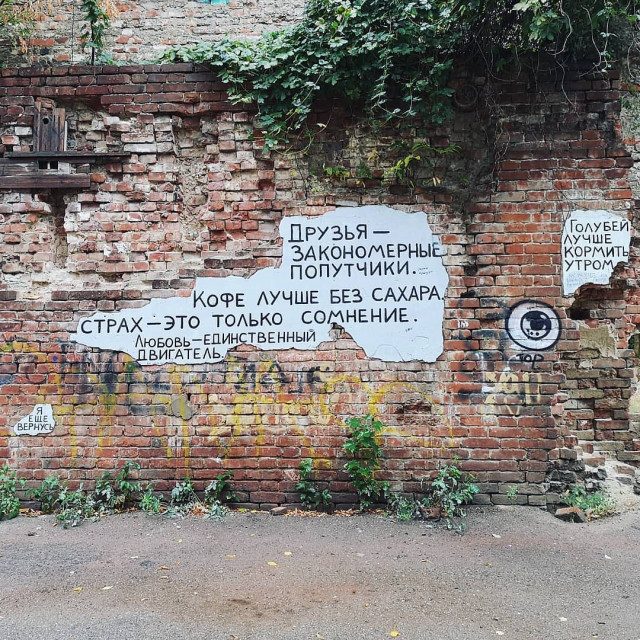 ДРУЗЬЯ—
ЗАКОНОМЕРНЫЕ
ПОПУТЧИКИ.
КОФЕ ЛУЧШЕ БЕЗ САХАРА.
СТРАХ—ЭТО ТОЛЬКО СОМНЕНИЕ.
ЛЮБОВЬ—ЕДИНСТВЕННЫЙ
ДВИГАТЕЛЬ.
ГОЛУБЕЙ
ЛУЧШЕ
КОРМИТЬ
УТРОМ
Я
ЕЩЕ
ВЕРНУСЬ